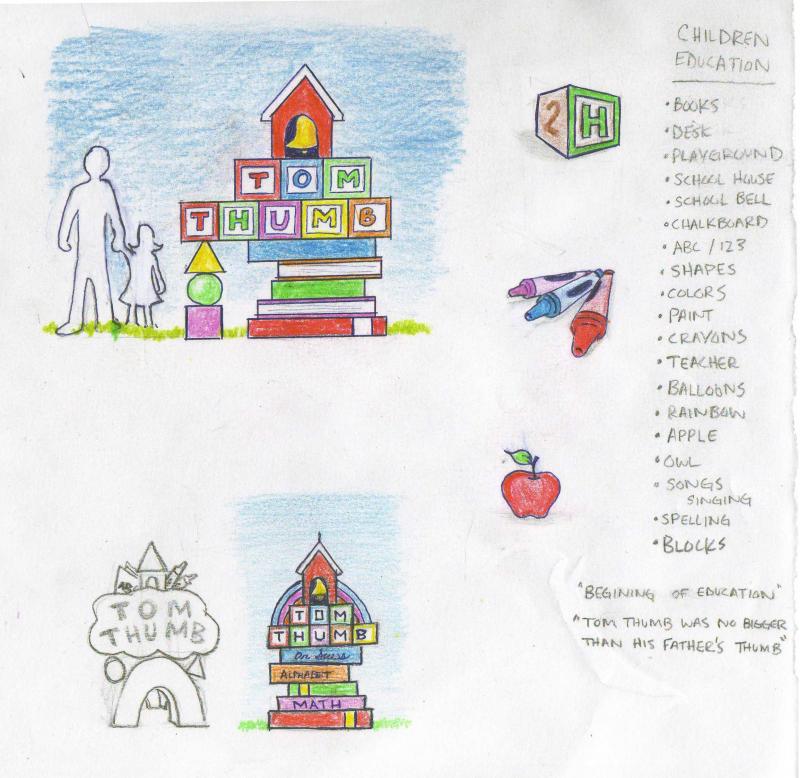 TOM
THUMB
2 H
CHILDREN
EDUCATION
• BOOKS
• DESK
• PLAYGROUND
• SCHOOL HOUSE
• SCHOOL BELL
• CHALKBOARD
• ABC / 123
• SHAPES
• COLORS
• PAINT
• CRAYONS
• TEACHER
• BALLOONS
• RAINBOW
• APPLE
• OWL
• SONGS
SINGING
• SPELLING
• BLOCKS
"BEGINING OF EDUCATION"
"TOM THUMB WAS NO BIGGER
THAN HIS FATHER'S THUMB"
TOM
THUMB
TOM
THUMB
Dr. Seuss
ALPHABET
MATH